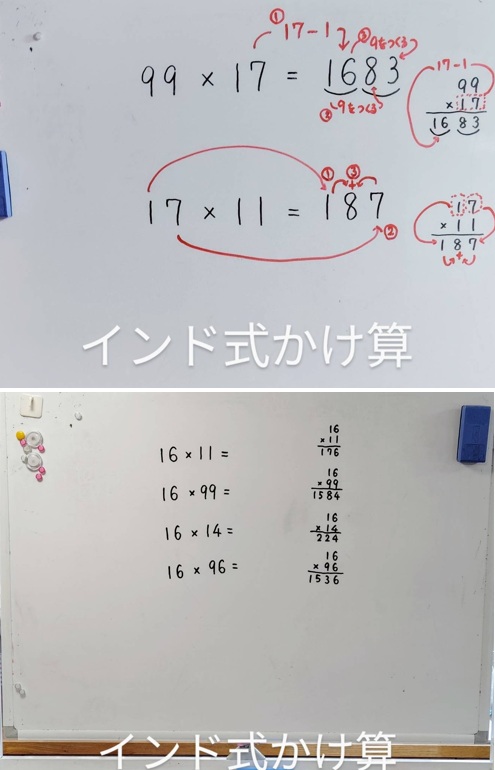 ① 17-1 ② 9をつくる
99 × 17 = 1683
③ 9をつくる
17-1
99
×17
1683
① ③
+
17 × 11 = 187
②
17
×11
187
+
インド式かけ算
16 × 11 =
16
×11
176
16 × 99 =
16
×99
1584
16 × 14 =
16
×14
224
16 × 96 =
16
×96
1536
インド式かけ算